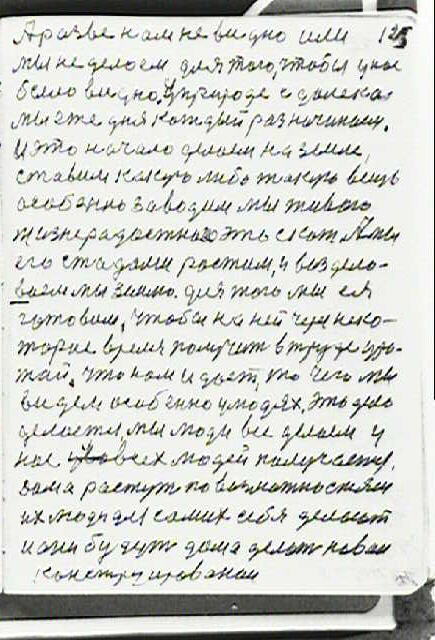 А разве нам не видно или 125
мы не делаем для того, чтобы у нас
было видно. В природе с далека
мы еже дня каждый раз начинаем.
И это начало делаем на земле,
ставим какую либо такую вещь
особенно заводим мы живого
жизнерадостного это скот. А мы
его стадами растим, и воздело-
ваем мы землю. для того мы ея
готовим, чтобы на ней через неко-
торое время получить в труде уро-
жай. что нам и даёт, то чего мы
видем особенно у людях. Это дело
делается, мы люди все делаем и
нас всех людей получается.
дома растут по возможностям
их люди для самих себя делают
и они будут дома делат новой
конструированой